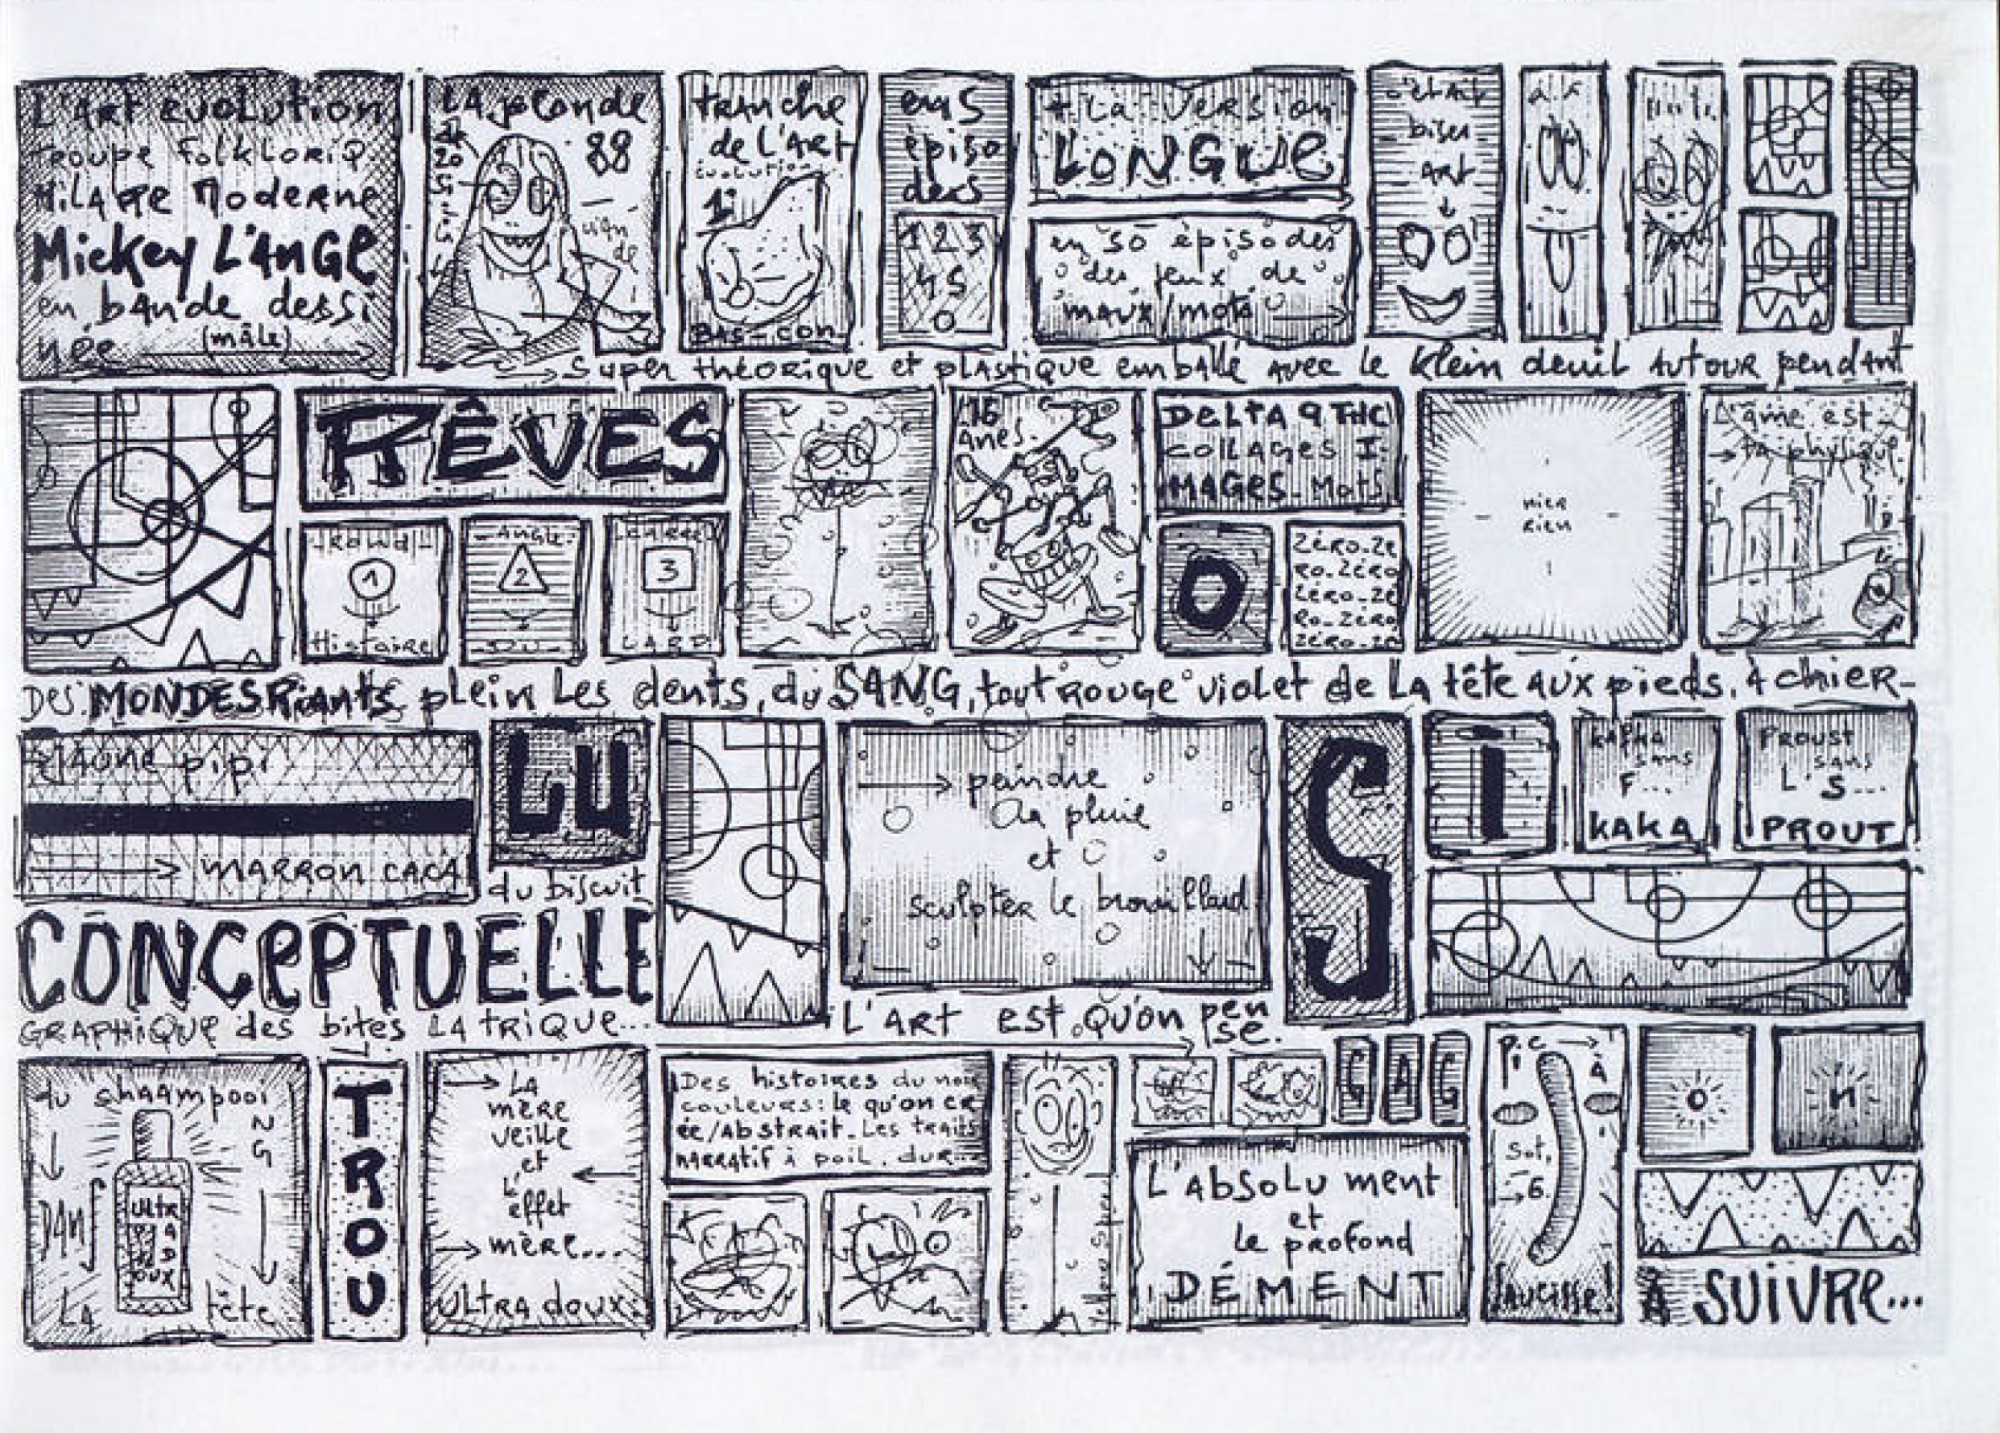 L'Art évolution
troupe folkloriq
Milaire Moderne
Mickey L'ANGE
en bande dessi
née (mâle)
LA jolonde
88
tranche
de L'ART
évolution
1
BAS-con
ens
épiso
ders
1 2 3
4 5
0
+ LA version
LONGUE
en 30 épisodes
des jeux de
maux/mots
c'était
biser
ART
Super théorique et plastique emballé avec le Klein deuil AUTOUR pendant
RÊVES
-Rond-
1
Histoire
-Angle-
2
-DU-
-carré-
3
LARD
L'16
anes.
DELTA 9 THC
collages I-
MAGES-Mots
O
Zéro-Zé
Ro-Zéro
Zéro-Zé
Ro-Zéro
Zéro-Zé
nier
rien
L'âme est
ta physique.
DES MONDES RIANTS plein Les dents, du SANG, tout ROUGE violet de LA tête AUX pieds. à chier-
JAUNE pipi
MARRON CACA
LU
du biscuit
CONCEPTUELLE
GRAPHIQUE des bites LA TRIQUE...
peindre
la pluie
et
sculpter le brouillard
L'ART est Qu'on pen
se.
S
I
KAFKA
sans
F...
KAKA
PROUST
sans
L'S...
PROUT
du shaampooi
NG
DANS
LA
tête
ULTR
A
D
OUX
TROU
LA
mère
veille
et
L'effet
mère...
ULTRA doux.
Des histoires du noir
couleurs: le qu'on cr
ée/Abstrait. Les traits
narratif à poil. dur...
GAG
L'Absolu ment
et
Le profond
DÉMENT
Pic
à
Sot,
6.
Saucisse!
O
N
À SUIVRE...